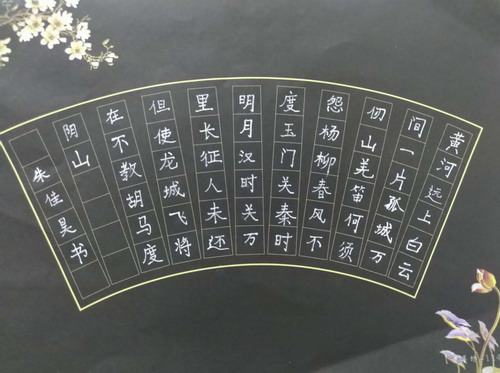 黄河远上白云
间一片孤城万
仞山羌笛何须
怨杨柳春风不
度玉门关秦时
明月汉时关万
里长征人未还
但使龙城飞将
在不教胡马度
阴山
朱佳昊书